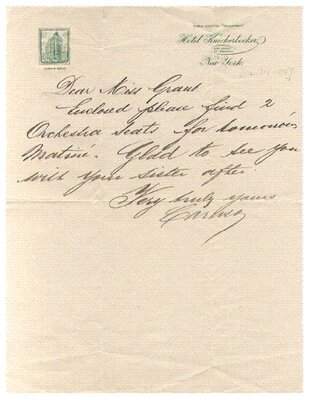 Hotel Knickerbocker
New York
Dear Miss Grant
Enclosed please find 2
Orchestra seats for tomorrow's
Matiné. Glad to see you
with your sister after.
Very truly yours
Caruso